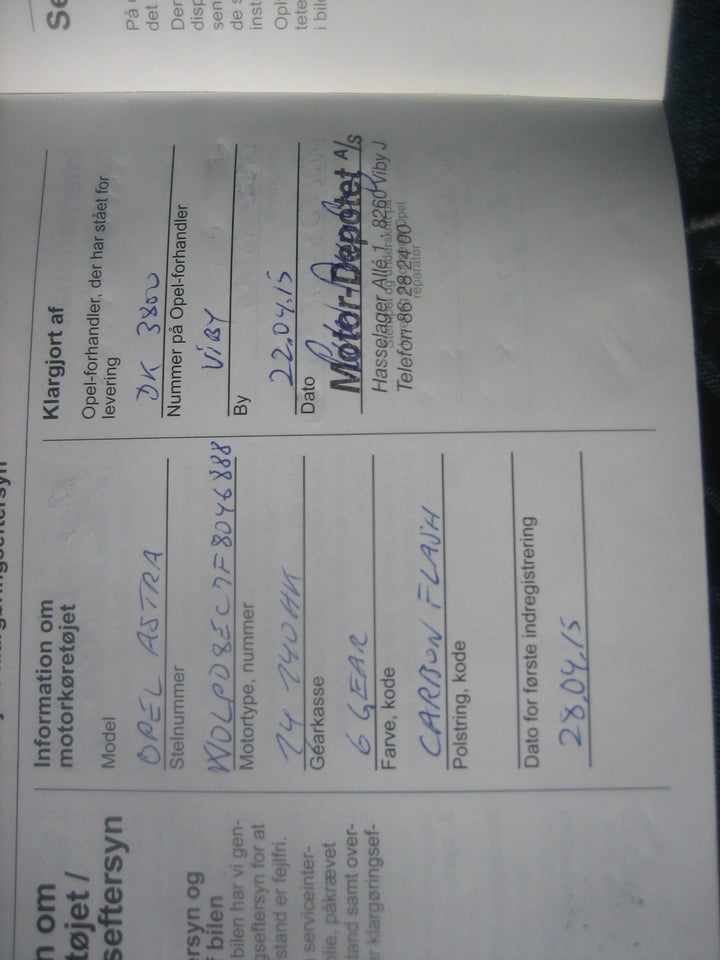 n om
tøjet /
seftersyn
ersyn og
f bilen
bilen har vi gen-
gseftersyn for at
stand er fejlfri.
serviceinter-
olie, påkrævet
tand samt over-
er klargøringsef-
Information om
motorkøretøjet
Model
OPEL ASTRA
Stelnummer
W0LPD8EC7F8046888
Motortype, nummer
14 140HK
Gearkasse
6 GEAR
Farve, kode
CARBON FLASH
Polstring, kode
Dato for første indregistrering
28.04.15
Klargjort af
Opel-forhandler, der har stået for
levering
DK 3800
Nummer på Opel-forhandler
VIBY
By
22.04.15
Dato
Motor-Depotet A/S
Hasselager Allé 1 . 8260 Viby J
Telefon 86 28 24 00
reparatør
Se
På
det
Der
disp
sen
de s
inst
Opl
tete
i bile